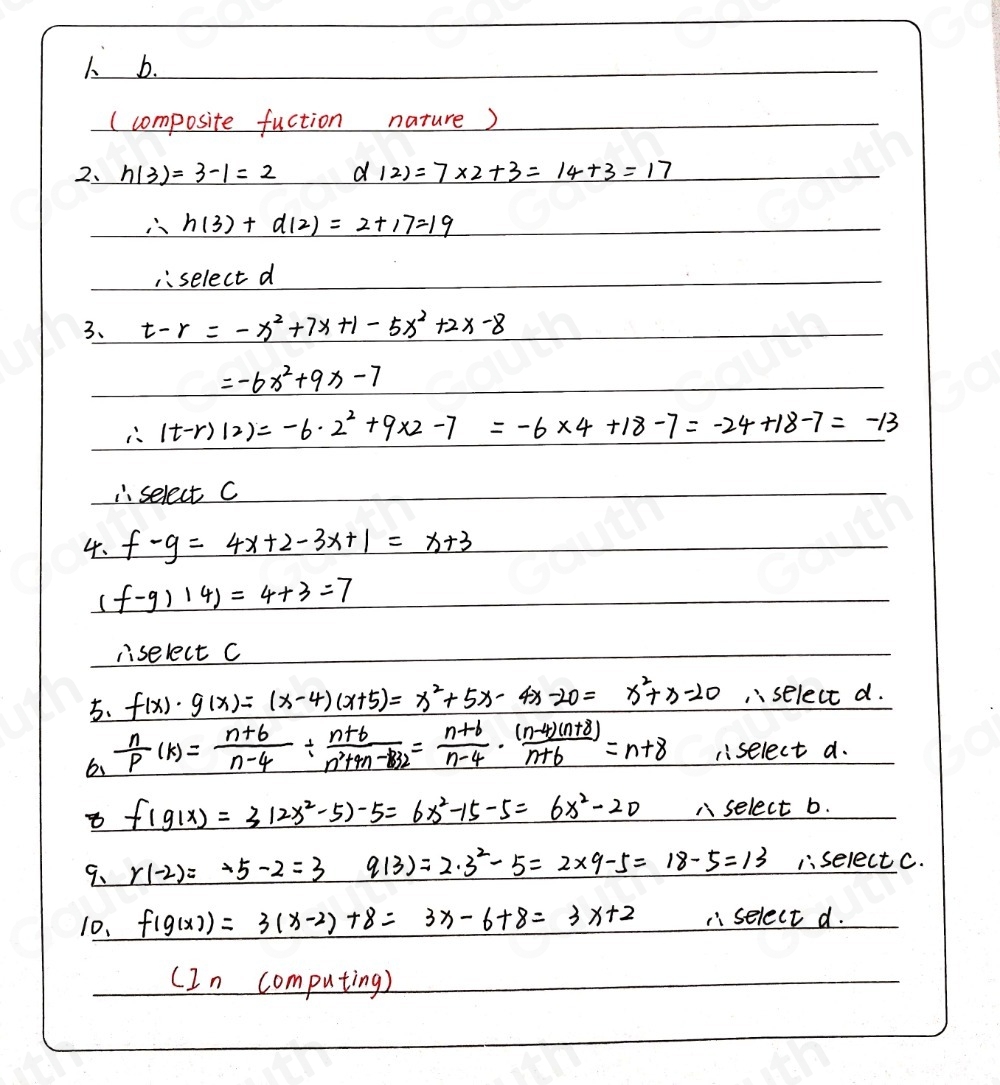 1、 b.
(composite fuction nature)
2、 h(3)=3-1=2 d(2)=7×2+3=14+3=17
∴ h(3)+d(2)=2+17=19
∴ select d
3、 t-r = -x²+7x+1-5x²+2x-8
=-6x²+9x-7
∴ (t-r)(2)=-6·2²+9×2-7 =-6×4+18-7=-24+18-7=-13
∴ select C
4、 f-g= 4x+2-3x+1 = x+3
(f-g)(4)=4+3=7
∴ select C
5、 f(x)·g(x)=(x-4)(x+5)=x²+5x-4x-20= x²+x-20 ∴ select d.
6、 n/p (k)= (n+6)/(n-4) ÷ (n+6)/(n²+4n-32) = (n+6)/(n-4) · (n-4)(n+8)/(n+6) = n+8 ∴ select d.
8 f(g(x)=3(2x²-5)-5=6x²-15-5=6x²-20 ∴ select b.
9、 r(-2)= 5-2=3 q(3)=2·3²-5=2×9-5=18-5=13 ∴ select c.
10、 f(g(x))=3(x-2)+8=3x-6+8=3x+2 ∴ select d.
(In computing)
Gauth